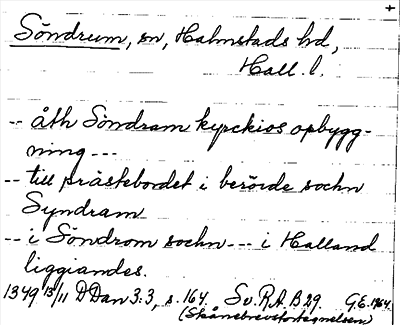 +
Söndrum, sn, Halmstads hd,
Hall. l.
-- åth Söndram kyrckios opbygg-
ning ---
-- till prästebordet i berörde sochn
Syndram
-- i Söndrom sochn --- i Halland
liggiandes.
1349 13/11 DDan 3:3, s. 164. Sv. R.A. B 29. G.E. 1964.
(Skånebrevsförtegnelsen)